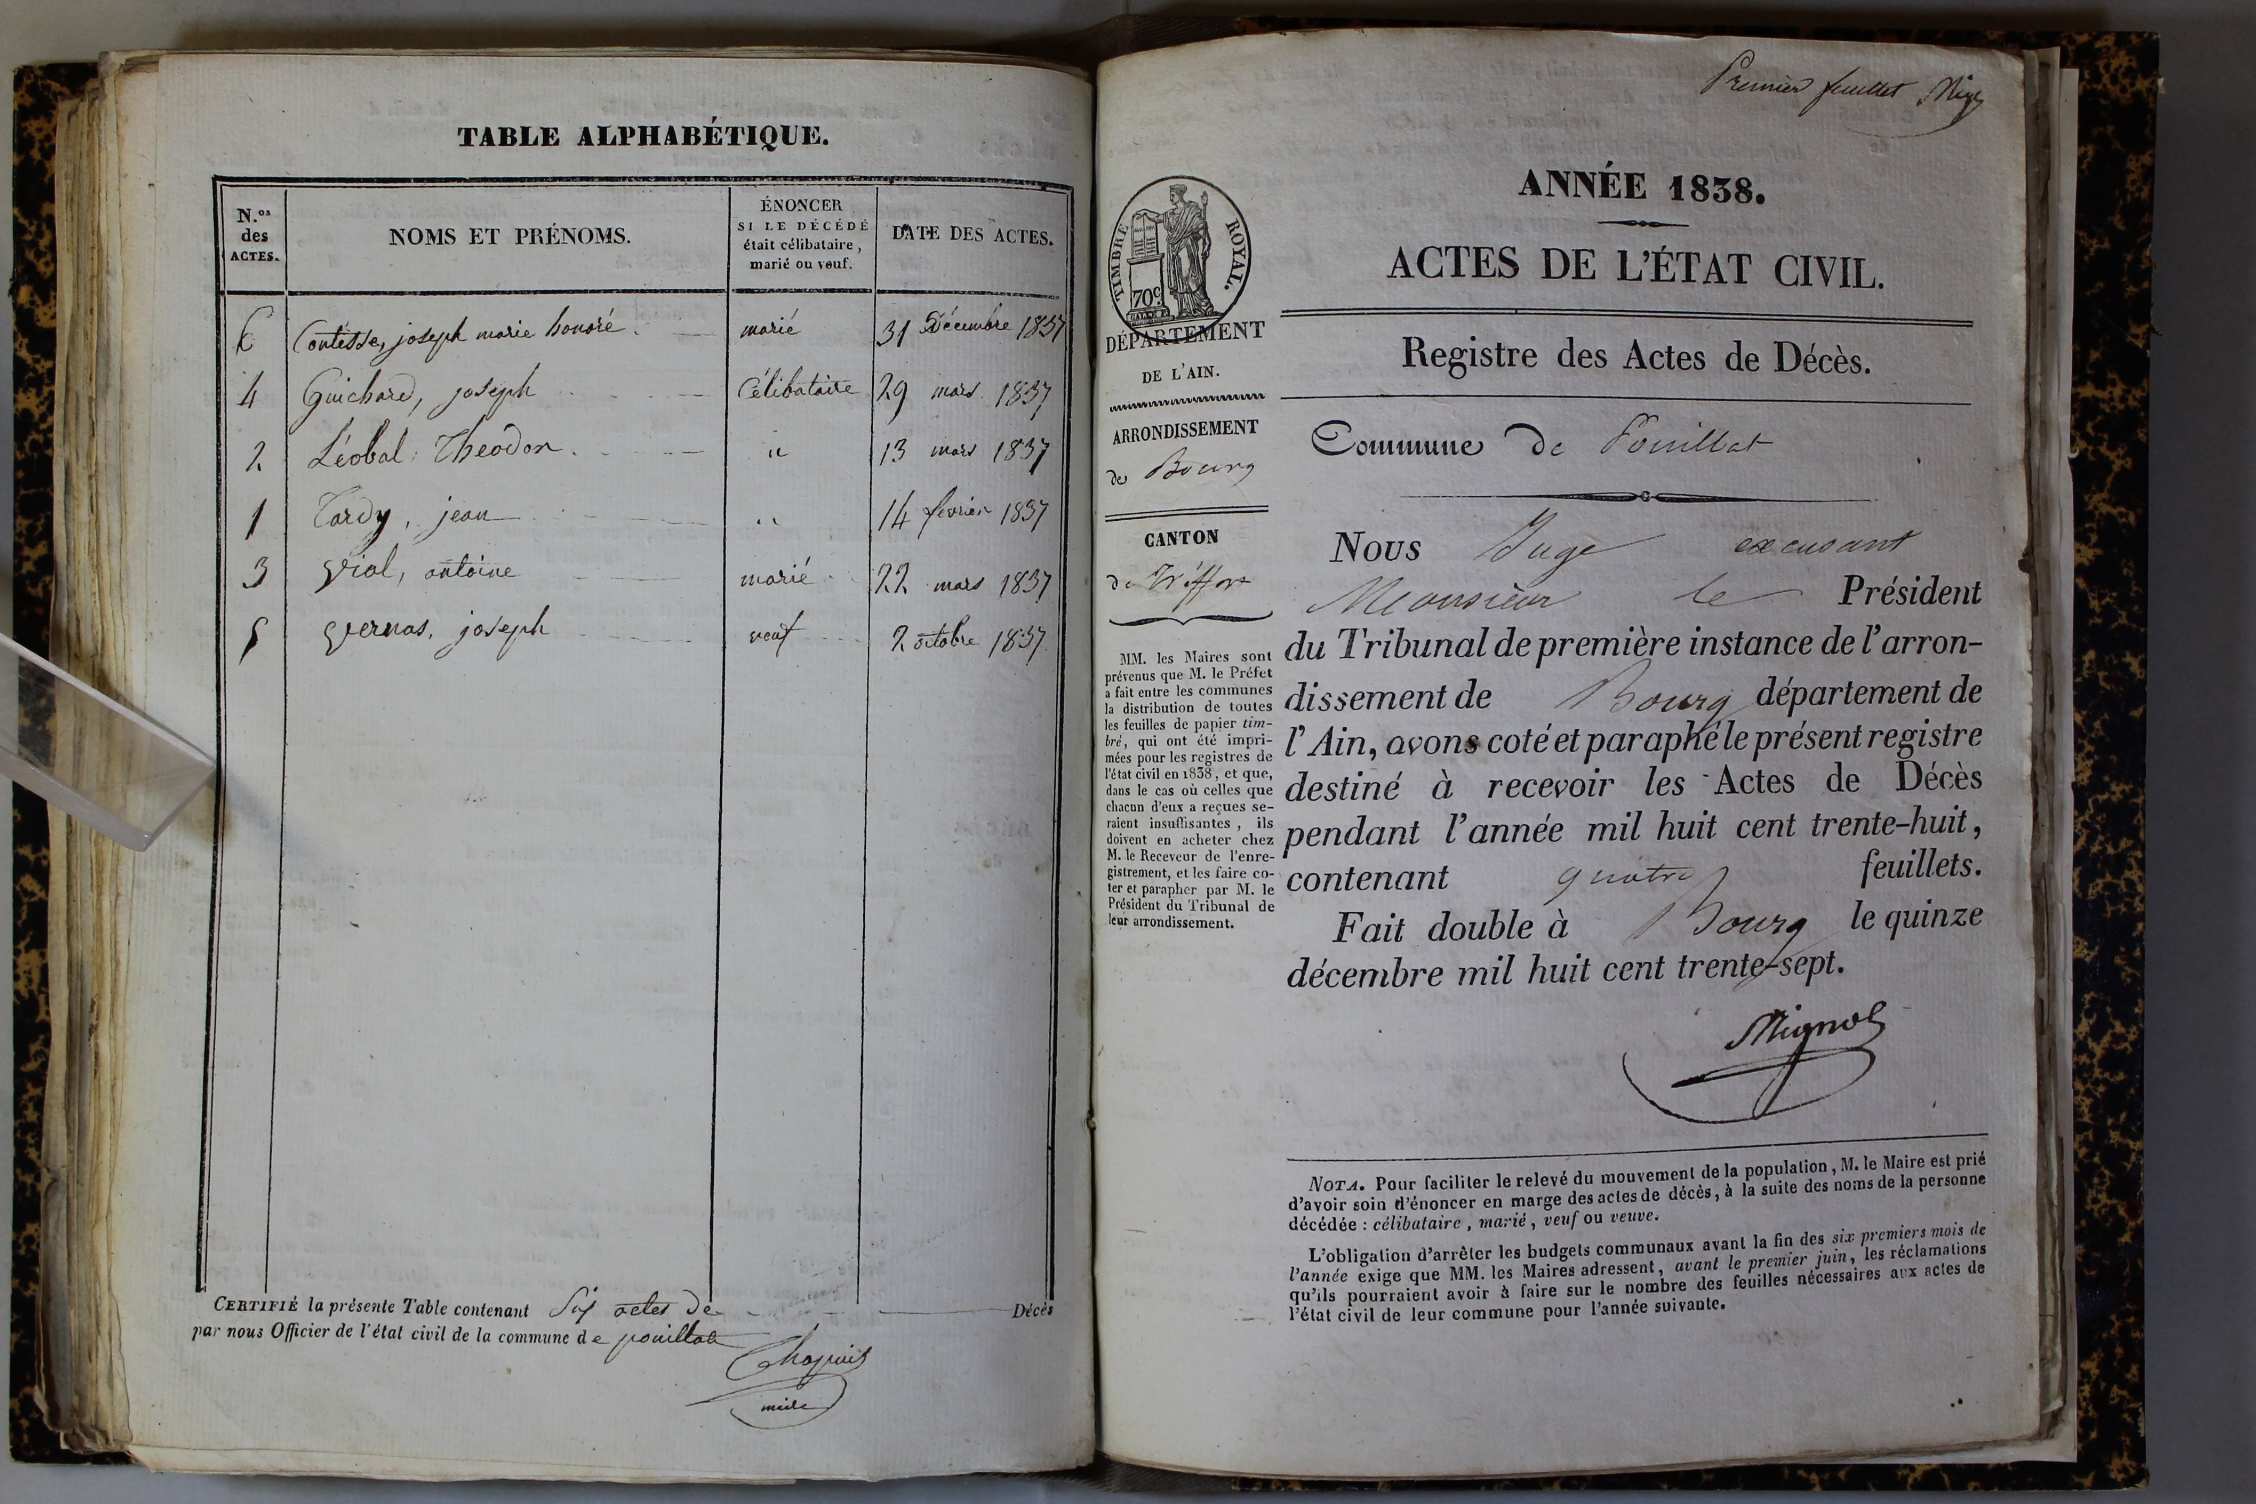 TABLE ALPHABÉTIQUE.
N.os des ACTES.
NOMS ET PRÉNOMS.
ÉNONCER
SI LE DÉCÉDÉ
était célibataire,
marié ou veuf.
DATE DES ACTES.
6 Contesse, joseph marie honoré marié 31 Décembre 1837
4 Guichard, joseph Célibataire 29 mars 1837
2 Léobal, Theodor " 13 mars 1837
1 Tardy, jean " 14 février 1837
3 Vial, antoine marié 22 mars 1837
5 Vernas, joseph veuf 2 octobre 1837
CERTIFIÉ la présente Table contenant Six actes de Décès
par nous Officier de l'état civil de la commune de pouillat
Chapuis
Premier feuillet
TIMBRE ROYAL.
70c
DÉPARTEMENT
DE L'AIN.
ARRONDISSEMENT
de Bourg
CANTON
de Tréffort
MM. les Maires sont
prévenus que M. le Préfet
a fait entre les communes
la distribution de toutes
les feuilles de papier tim-
bré, qui ont été impri-
mées pour les registres de
l'état civil en 1838, et que,
dans le cas où celles que
chacun d'eux a reçues se-
raient insuffisantes, ils
doivent en acheter chez
M. le Receveur de l'enre-
gistrement, et les faire co-
ter et parapher par M. le
Président du Tribunal de
leur arrondissement.
ANNÉE 1838.
ACTES DE L'ÉTAT CIVIL.
Registre des Actes de Décès.
Commune de Pouillat
Nous Juge excusant
Monsieur le Président
du Tribunal de première instance de l'arron-
dissement de Bourg département de
l'Ain, avons coté et paraphé le présent registre
destiné à recevoir les Actes de Décès
pendant l'année mil huit cent trente-huit,
contenant quatre feuillets.
Fait double à Bourg le quinze
décembre mil huit cent trente-sept.
Mignot
NOTA. Pour faciliter le relevé du mouvement de la population, M. le Maire est prié
d'avoir soin d'énoncer en marge des actes de décès, à la suite des noms de la personne
décédée : célibataire, marié, veuf ou veuve.
L'obligation d'arrêter les budgets communaux avant la fin des six premiers mois de
l'année exige que MM. les Maires adressent, avant le premier juin, les réclamations
qu'ils pourraient avoir à faire sur le nombre des feuilles nécessaires aux actes de
l'état civil de leur commune pour l'année suivante.